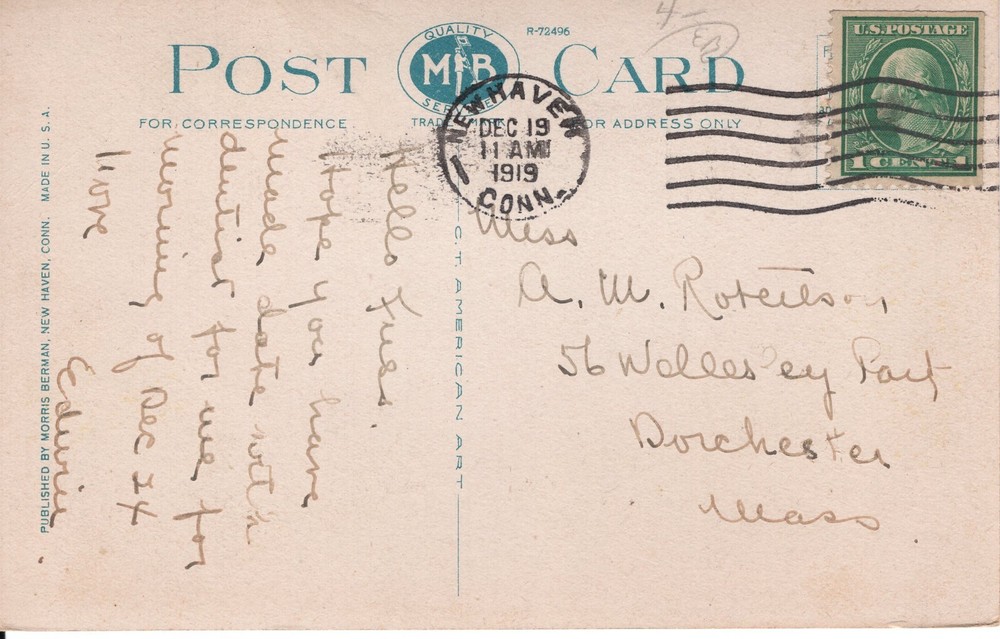 POST CARD
QUALITY
MB
SERVICE
TRADE MARK
R-72496
4-
FOR CORRESPONDENCE
FOR ADDRESS ONLY
U.S. POSTAGE
1 CENT 1
NEW HAVEN
DEC 19
11 AM
1919
CONN.
1
Hello
I hope you have
made date with
dentist for me for
morning of Dec 24
Love
Edwin
Miss
A. M. Robertson
56 Wellesley Park
Dorchester
Mass
C.T. AMERICAN ART
PUBLISHED BY MORRIS BERMAN, NEW HAVEN, CONN. MADE IN U. S. A.